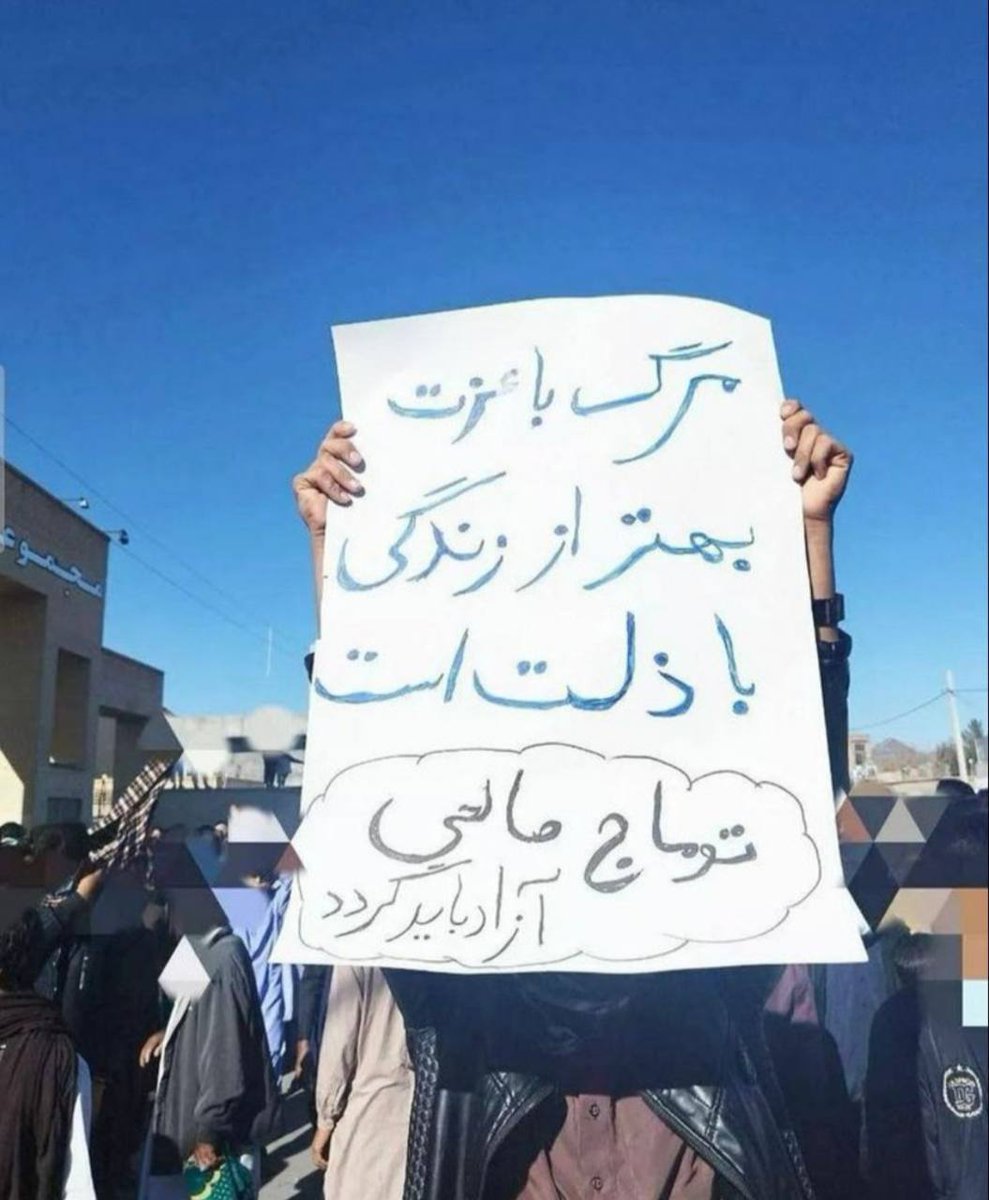 مرگ با عزت
بهتر از زندگی
با ذلت است
توماج صالحی
آزاد باید گردد
مجموع